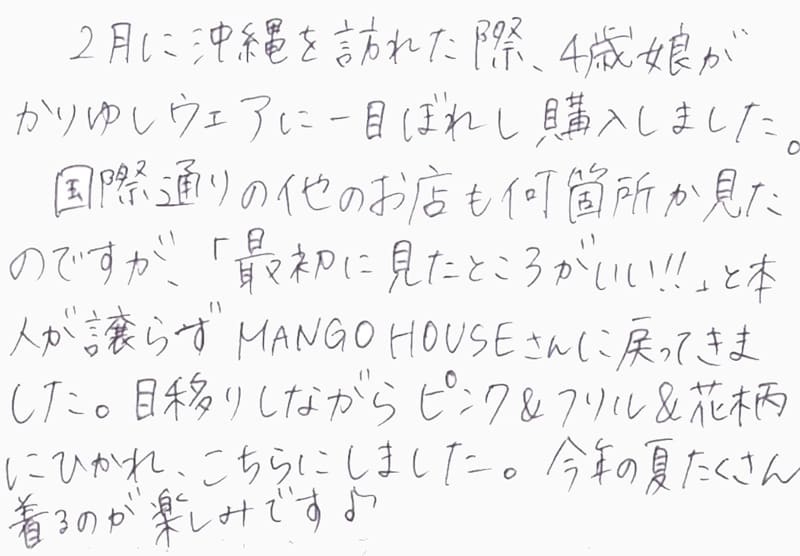 2月に沖縄を訪れた際、4歳娘が
かりゆしウェアに一目ぼれし購入しました。
国際通りの他のお店も何箇所か見た
のですが、「最初に見たところがいい!!」と本
人が譲らずMANGO HOUSEさんに戻ってきま
した。目移りしながらピンク&フリル&花柄
にひかれ、こちらにしました。今年の夏たくさん
着るのが楽しみです♪